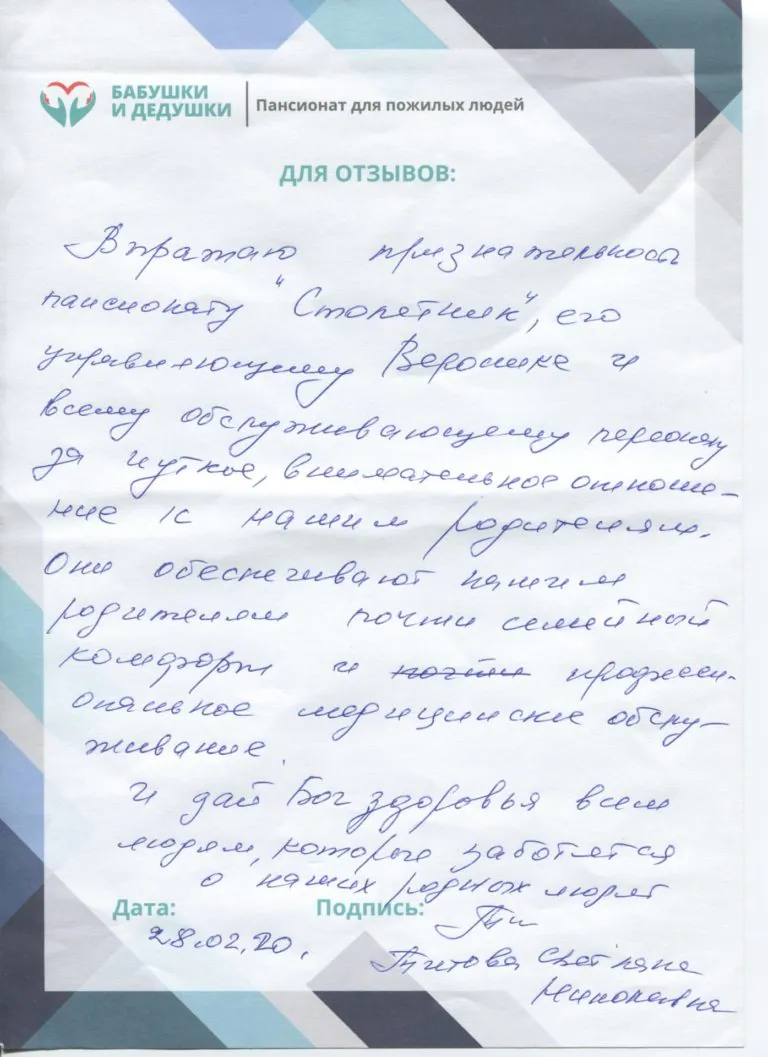 БАБУШКИ
И ДЕДУШКИ
Пансионат для пожилых людей
ДЛЯ ОТЗЫВОВ:
Выражаю признательность
пансионату "Столетник", его
управляющему Веронике и
всему обслуживающему персоналу
за чуткое, внимательное отноше-
ние к нашим родителям.
Они обеспечивают нашим
родителям почти семейный
комфорт и почти професси-
ональное медицинское обслу-
живание.
И дай Бог здоровья всем
людям, которые заботятся
о наших родных людях
Дата: Подпись:
28.02.20.
Титова Светлана
Николаевна